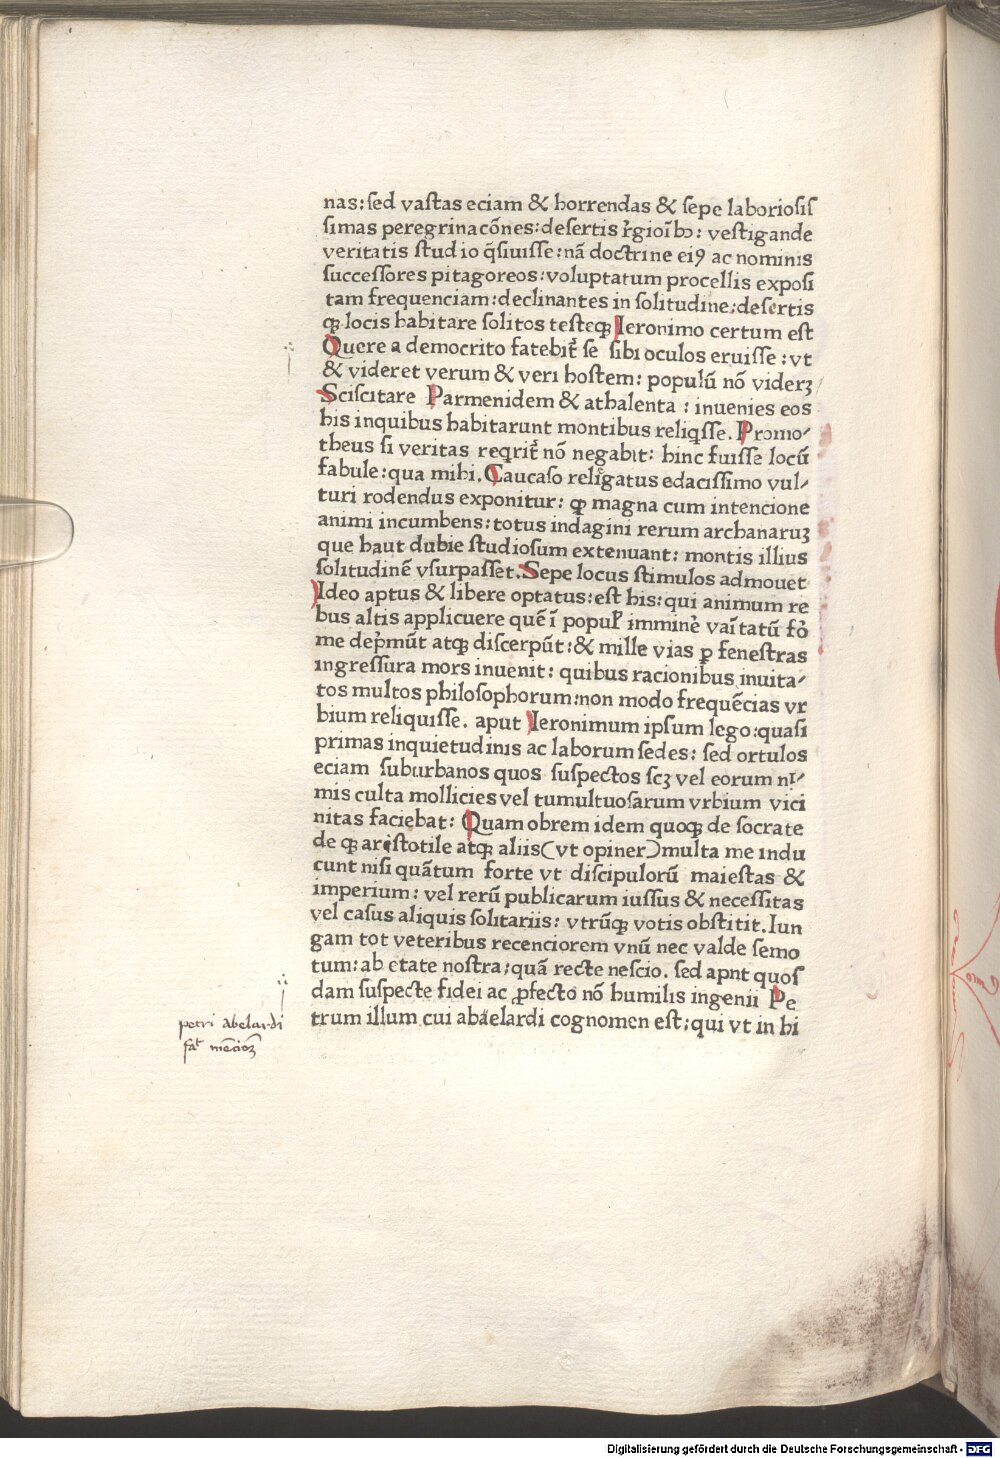 nas:sed vastas eciam & horrendas & sepe laboriosis
simas peregrinacōnes:desertis r̓gioībꝫ: vestigande
veritatis studio q̄siuisse:nā doctrine eiꝰ ac nominis
successores pitagoreos:voluptatum procellis exposi
tam frequenciam:declinantes in solitudine;desertis
qꝫ locis habitare solitos testeqꝫ Ieronimo certum est
Quere a democrito fatebit̄ se sibi oculos eruisse:vt
& videret verum & veri hostem: populū nō viderꝫ
Sciscitare Parmenidem & athalenta : inuenies eos
his inquibus habitarunt montibus reliqsse. Promo⸗
theus si veritas reqrit̄ nō negabit: hinc fuisse locū
fabule:qua mihi. Caucaso religatus edacissimo vul⸗
turi rodendus exponitur: qꝫ magna cum intencione
animi incumbens:totus indagini rerum archanaruꝫ
que haut dubie studiosum extenuant: montis illius
solitudinē vsurpasset. Sepe locus stimulos admouet
Ideo aptus & libere optatus:est his:qui animum re
bus altis applicuere quē ī popul̓ imminē vaītatū fō
me dep̓mūt atqꝫ discerpūt:& mille vias ꝑ fenestras
ingressura mors inuenit: quibus racionibus inuita⸗
tos multos philosophorum:non modo frequēcias vr
bium reliquisse. aput Ieronimum ipsum lego:quasi
primas inquietudinis ac laborum sedes: sed ortulos
eciam suburbanos quos suspectos scꝫ vel eorum ni⸗
mis culta mollicies vel tumultuosarum vrbium vici
nitas faciebat: Quam obrem idem quoqꝫ de socrate
de qꝫ aristotile atqꝫ aliis(vt opiner)multa me indu
cunt nisi quātum forte vt discipulorū maiestas &
imperium: vel rerū publicarum iussus & necessitas
vel casus aliquis solitariis: vtrūqꝫ votis obstitit. Iun
gam tot veteribus recenciorem vnū nec valde semo
tum: ab etate nostra;quā recte nescio. sed apnt quos
dam suspecte fidei ac ꝓfecto nō humilis ingenii Pe
trum illum cui abaelardi cognomen est;qui vt in hi
petri abelardi
fac̄ mēcionꝫ
Digitalisierung gefördert durch die Deutsche Forschungsgemeinschaft - DFG